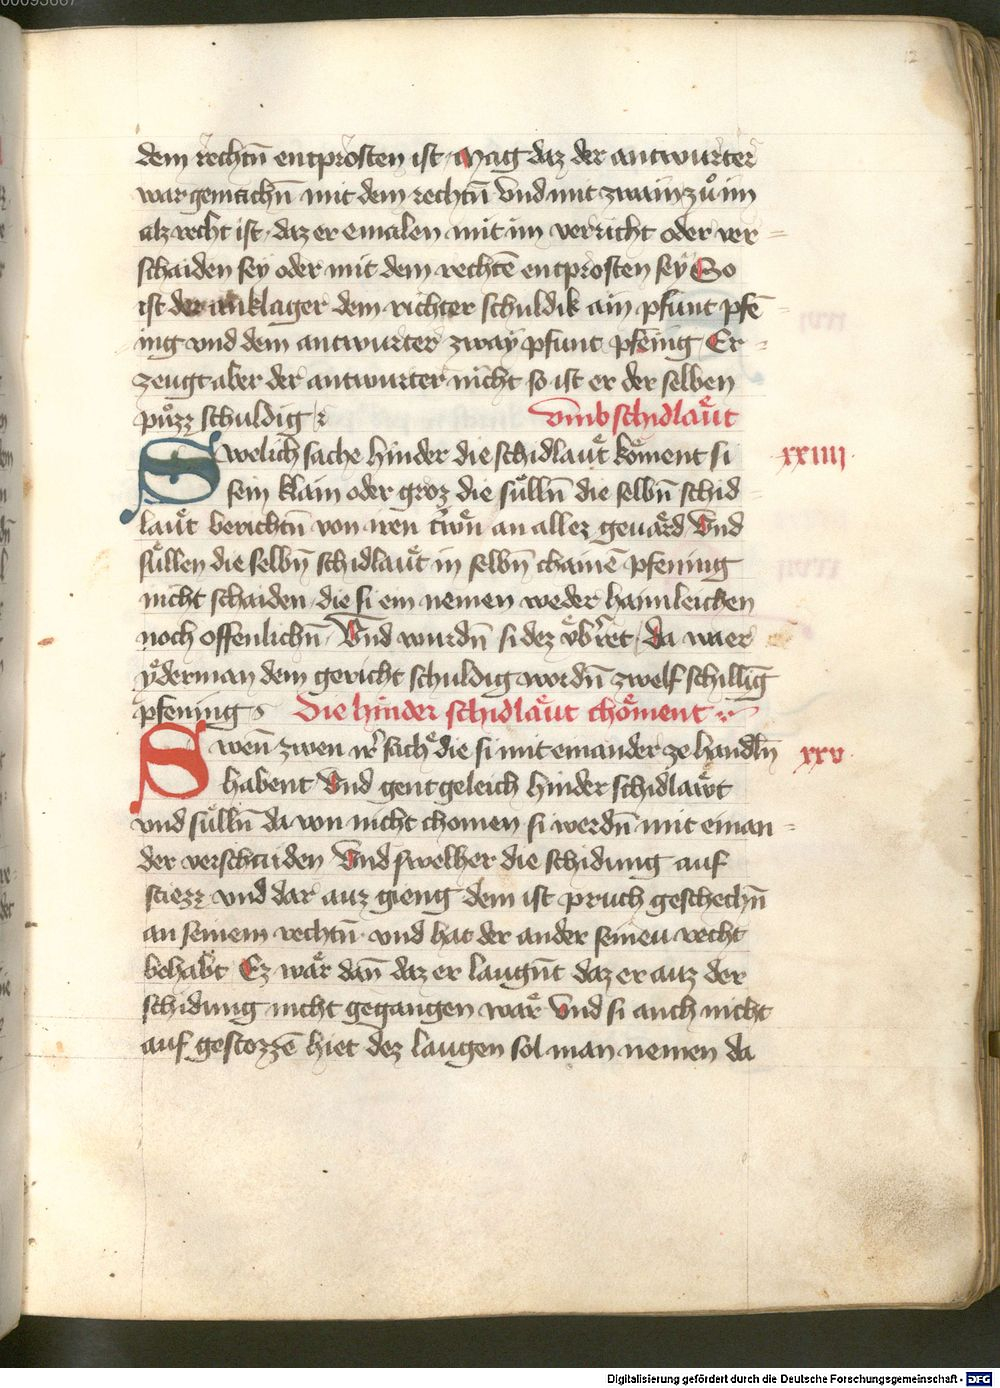 00093667
12
dem rechtn̄ entprosten ist Mag daz der antwurter
war gemachn̄ mit dem rechtn̄ Vnd mit zwain zů im
alz recht ist daz er emalen mit im verricht oder ver=
schaiden sey oder mit dem rechtē entprosten sey So
ist der anklager dem richter schuldik ain pfunt pfē
ing vnd dem antwurter zway pfunt pfēing Er=
zeugt aber der antwurter nicht so ist er der selben
půzz schuldig
vmb schidlaͤut
Swelich sache hinder die schidlaͤut koͤment si
xxiiii
sein klain oder groz die sůlln̄ die selbn̄ schid
laͤut berichtn̄ von iren trwͤn an allez geuaͤrd Vnd
sůllen die selbn̄ schidlaͤut in selbn̄ chainē pfening
nicht schaiden die si ein nemen weder haimleichen
noch offenlichn̄ Vnd wurdn̄ si dez vͤbret da waer
yderman dem gericht schuldig wordn̄ zwelf schilling
pfening Die hinder schidlaͤut choͤment
Swen̄ zwen ir sach die si mit einander ze handln̄
xxv
habent Vnd gent geleich hinder schidlaͤwt
vnd sůlln̄ da von nicht chomen si werdn̄ mit einan=
der verschaiden Vnd swelher die schidung auf
stiezz vnd dar auz gieng dem ist pruch geschechn̄
an seinem rechtn̄ vnd hat der ander seineu recht
behabt Ez waͤr dan̄ daz er laugn̄t daz er auz der
schidung nicht gegangen waͤr Vnd si auch nicht
auf gestozzē hiet dez laugen sol man nemen da
Digitalisierung gefördert durch die Deutsche Forschungsgemeinschaft - DFG